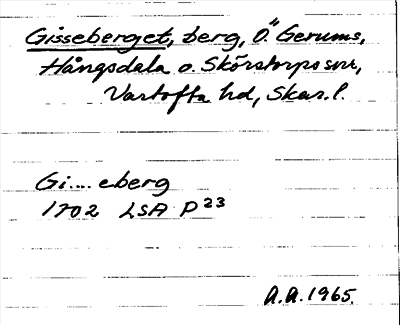 Gisseberget, berg, Ö. Gerums,
Hångsdala o. Skörstorps snr,
Vartofta hd, Skar. l.
Gi....eberg
1702 LSA P 23
A.A. 1965.